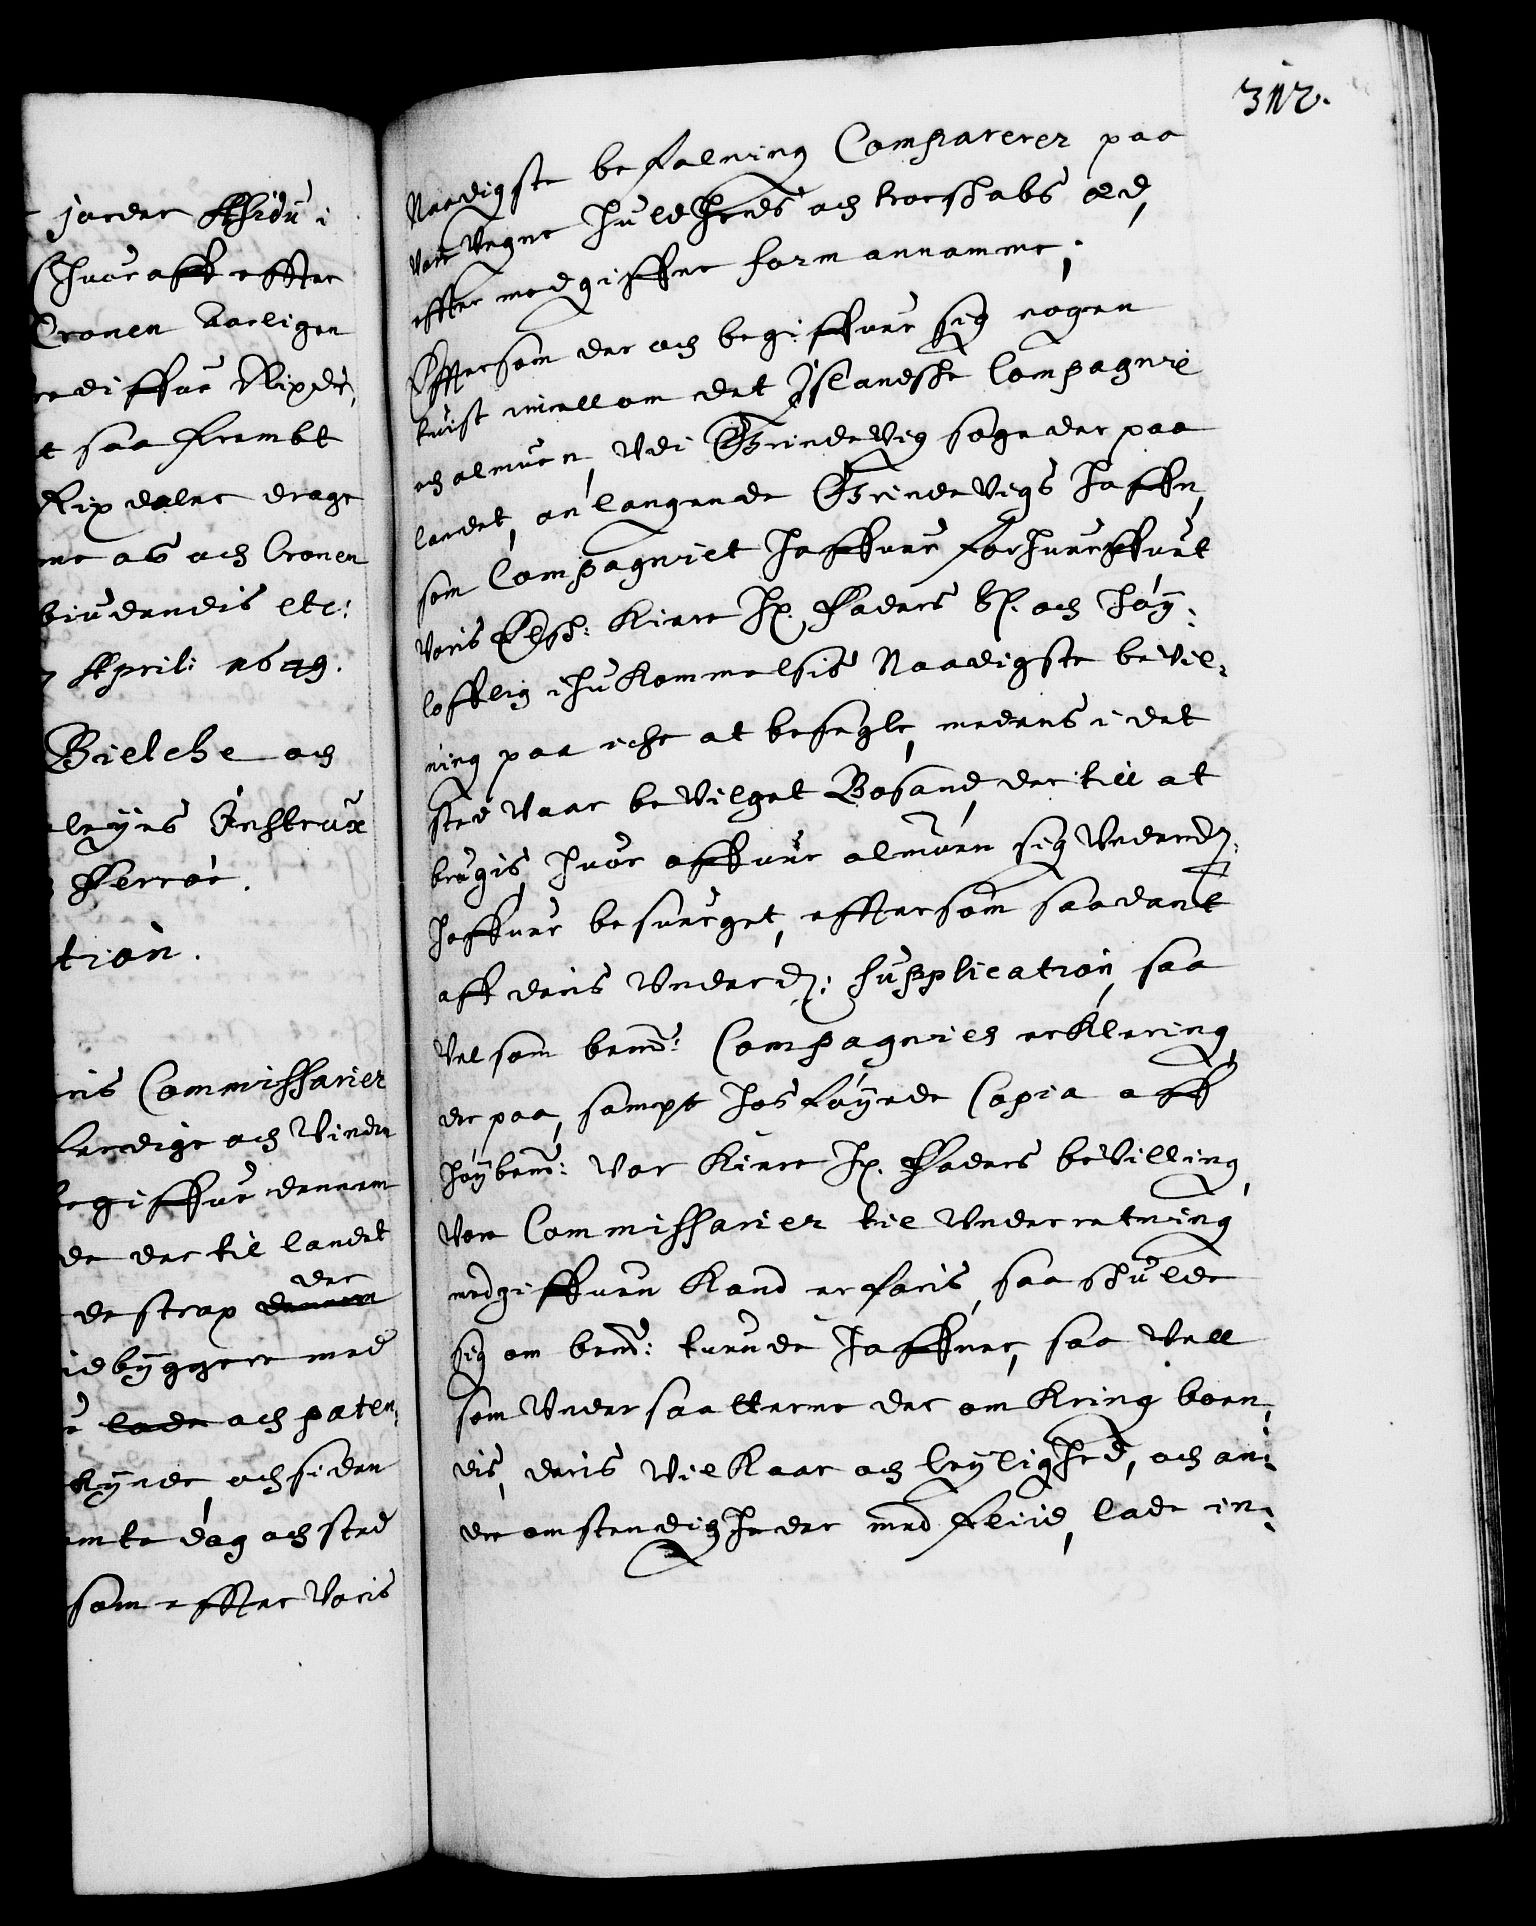 312.
jorder
Huor aff effter
Cronen Aarligen
Rixdr,
t saa frembt
Rixdaler drage
me os och Cronen
biudendis etc:
April: 1649.
Bielche och
Instrux
Ferröe.
tion.
ris Commissarier
ferdige och
begiffue dennem
de der til landet
der
de strax dennem
idbyggere med
lade och paten,
kynde, och siden
emte dag och sted
som effter Voris
Naadigste befalning Comparerer paa
vore Vegne huldheds och troschabs æd,
effter medgiffne form annamme;
Efftersom der och begiffuer sig nogen
tuist imellom det Islandske Compagnie
och almuen, Vdi GrindeVig sogn der paa
landet, anlangende GrindeVigs haffn,
som Compagniet haffuer forhuerffuet
Voris Elsk: Kiere Hr. Faders S. och høy,
lofflig ihukommelsis Naadigste beVil,
ning paa iche at besegle, medens i det
sted vaar beVilget Bosand, der till at
brugis, huor offuer almuen sig Underd:
haffuer besuerget, efftersom saadant
aff deris Underd: Supplication, saa
Vel som bemt: Compagnies erklering
der paa, sampt hosføyede Copia aff
høybemt: Vor Kiere Hr. Faders beVilling,
Vore Commissarier til Underretning
medgiffuen kand erfaris, saa schulde
sig om bemt: tuende haffner, saa Vell
som Undersaatterne der omkring boen,
dis, deris Vilkaar och leylighed, och an,
dre omstendigheder med fliid, lade in,